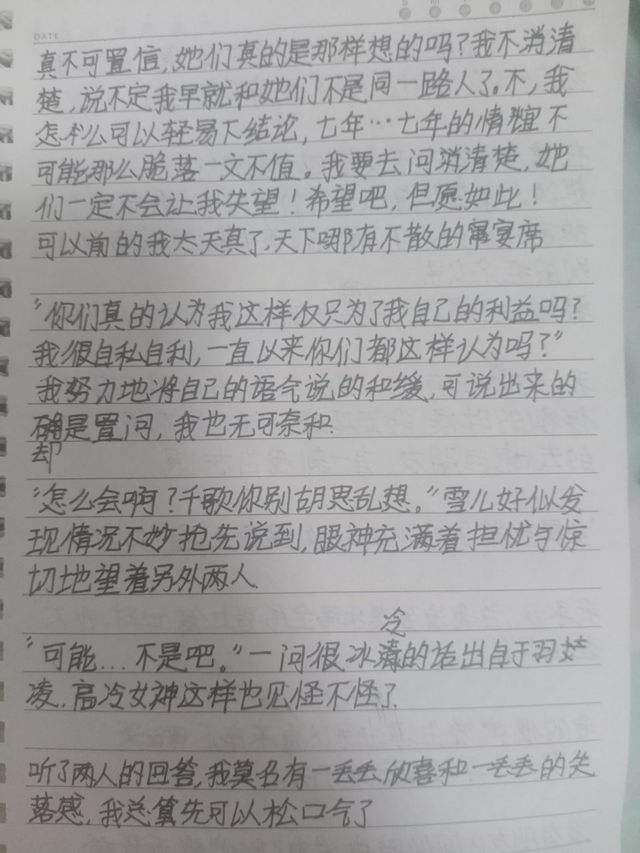 DATE
真不可置信,她们真的是那样想的吗?我不消清
楚,说不定我早就和她们不是同一路人了。不,我
怎么可以轻易下结论,七年…七年的情谊不
可能那么脆落一文不值。我要去问消清楚,她
们一定不会让我失望!希望吧,但愿如此!
可以前的我太天真了,天下哪有不散的宴席
“你们真的认为我这样仅只为了我自己的利益吗?
我很自私自利,一直以来你们都这样认为吗?”
我努力地将自己的语气说的和缓,可说出来的
却是置问,我也无可奈和.
“怎么会啊?千歌你别胡思乱想。”雪儿好似发
现情况不妙抢先说到,眼神充满着担忧与惊
切地望着另外两人.
“可能...不是吧。”一问很冰冷的话出自于羽
凌.高冷女神这样也见怪不怪了.
听了两人的回答,我莫名有一丢丢欣喜和一丢丢的失
落感,我总算先可以松口气了